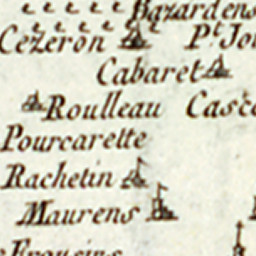 Bazardens
Cezeron P.t Jo
Cabaret
Roulleau Casc
Pourcarette
Rachetin
Maurens